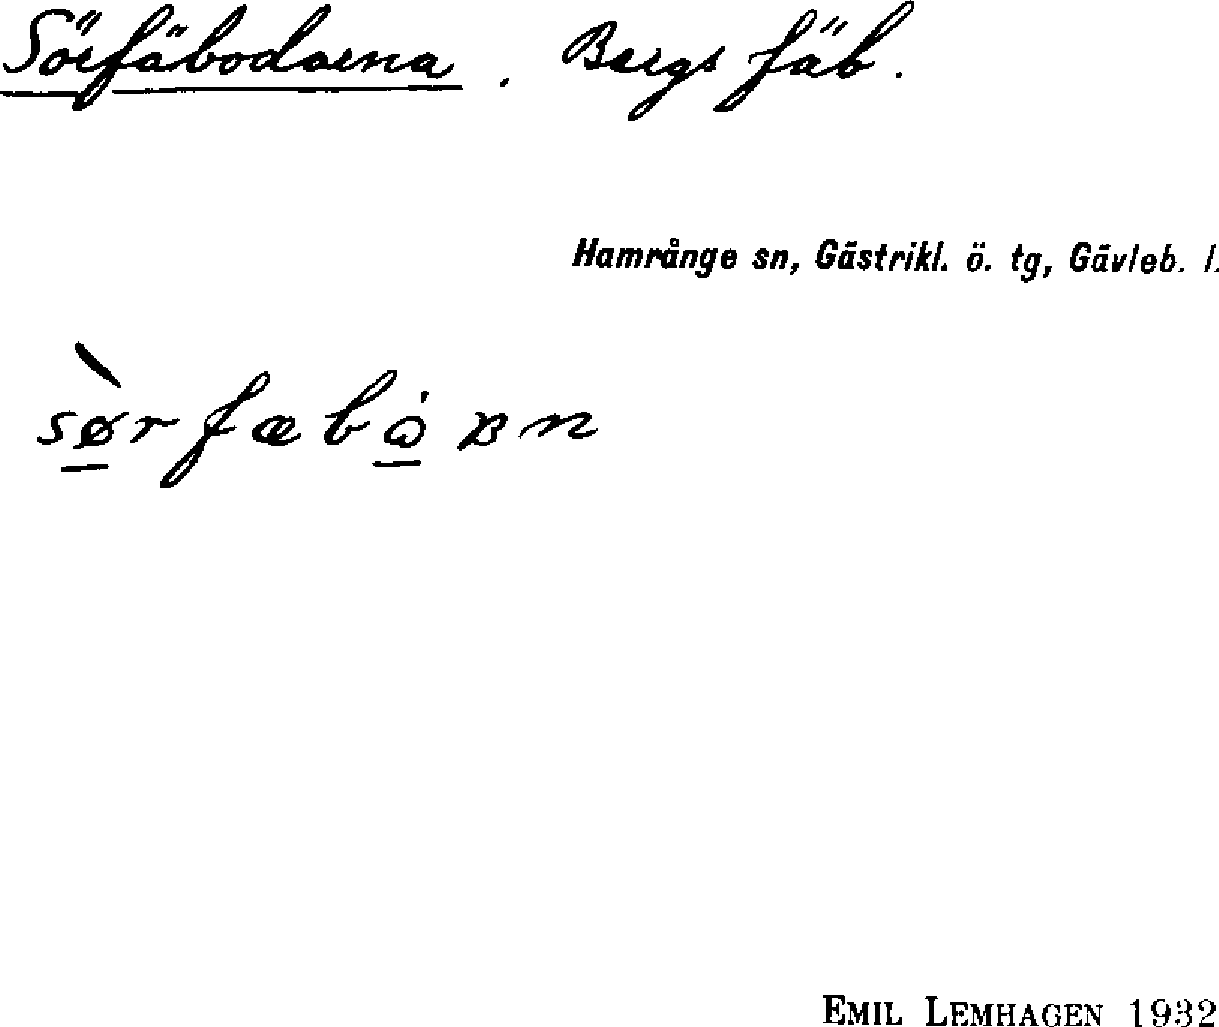 Sörfäbodarna . Bergs fäb.
Hamrånge sn, Gästrikl. ö. tg, Gävleb. l.
EMIL LEMHAGEN 1932